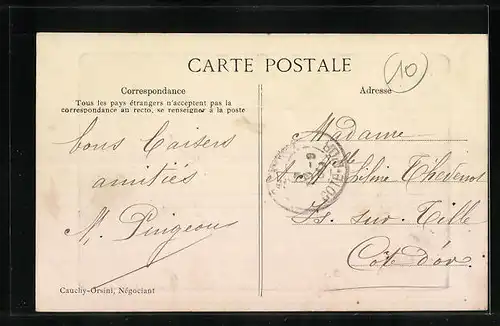 CARTE POSTALE
10
Correspondance
Tous les pays étrangers n'acceptent pas la
correspondance au recto, se renseigner à la poste
Adresse
bons baisers
amitiés
Madame
Hélène Thedenot
Is sur Tille
Côte d'or
Cauchy-Orsini, Négociant